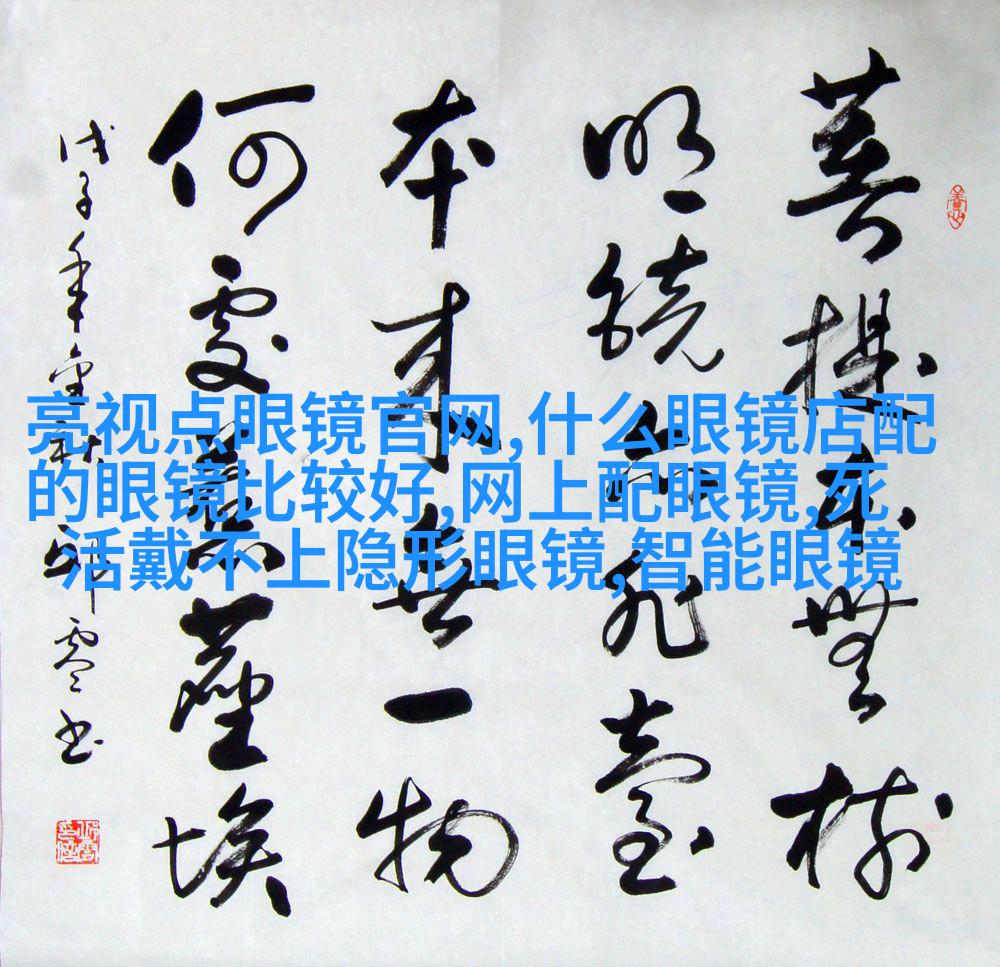 亮视点眼镜官网,什么眼镜店配
的眼镜比较好,网上配眼镜,死
活戴不上隐形眼镜,智能眼镜
菩提本無樹
明鏡亦非臺
本來無一物
何處惹塵埃
戊子年金秋 零书